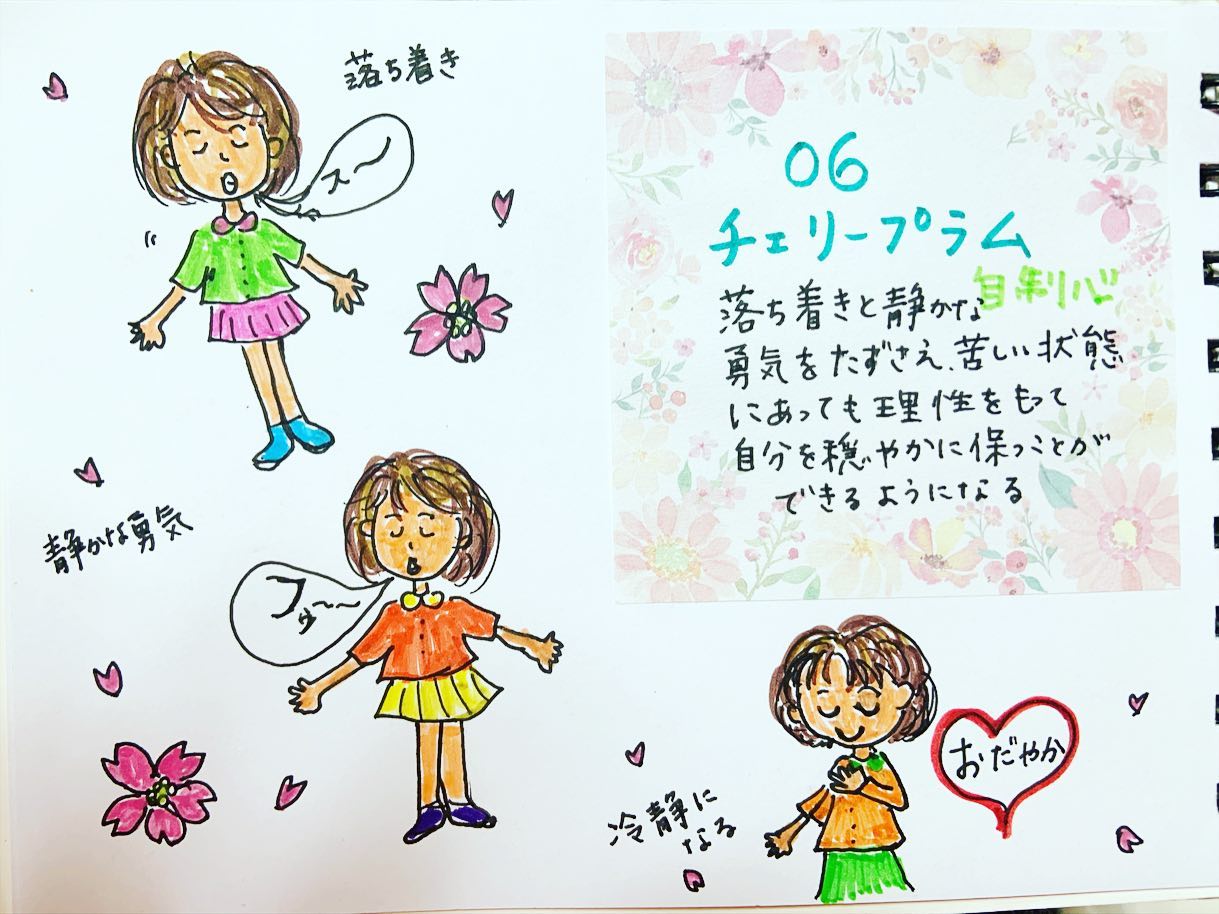 落ち着き
スー
静かな勇気
フゥ〜〜
06
チェリープラム
自制心
落ち着きと静かな
勇気をたずさえ、苦しい状態
にあっても理性をもって
自分を穏やかに保つことが
できるようになる
おだやか
冷静に
なる